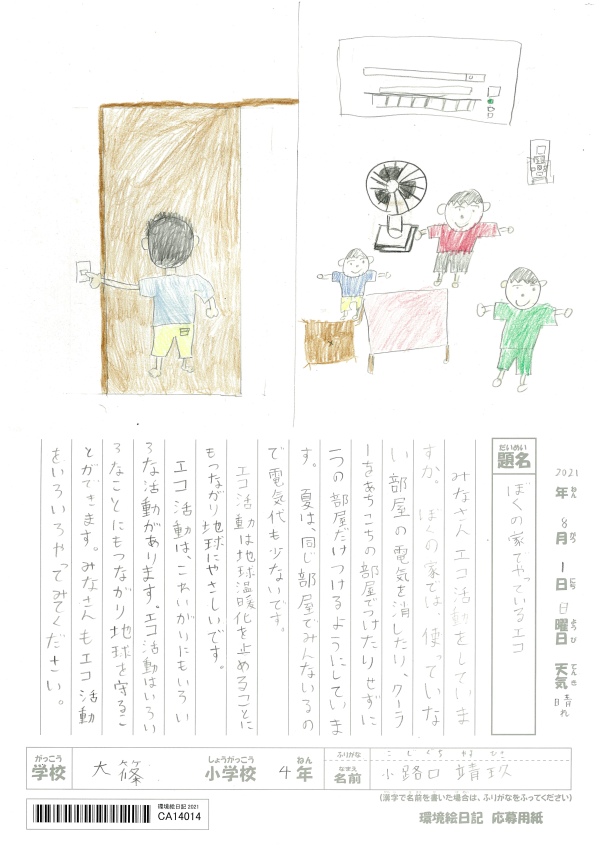 2021年ねん 8月がつ 1日にち 日曜日ようび 天気てんき 晴れ
だいめい
題名
ぼくの家でやっているエコ
みなさんエコ活動をしていま
すか。ぼくの家では、使っていな
い部屋の電気を消したり、クーラ
ーをあちこちの部屋でつけたりせずに
一つの部屋だけつけるようにしていま
す。夏は、同じ部屋でみんないるの
で電気代も少ないです。
エコ活動は地球温暖化を止めることに
もつながり地球にやさしいです。
エコ活動は、これいがいにもいろい
ろな活動があります。エコ活動はいろい
ろなことにもつながり地球を守るこ
とができます。みなさんもエコ活動
をいろいろやってみてください。
がっこう
学校
大篠
しょうがっこう
小学校
4年ねん
ふりがな
なまえ
名前
小路口 靖玖
(漢字で名前を書いた場合は、ふりがなをふってください)
環境絵日記 2021
CA14014
環境絵日記 応募用紙